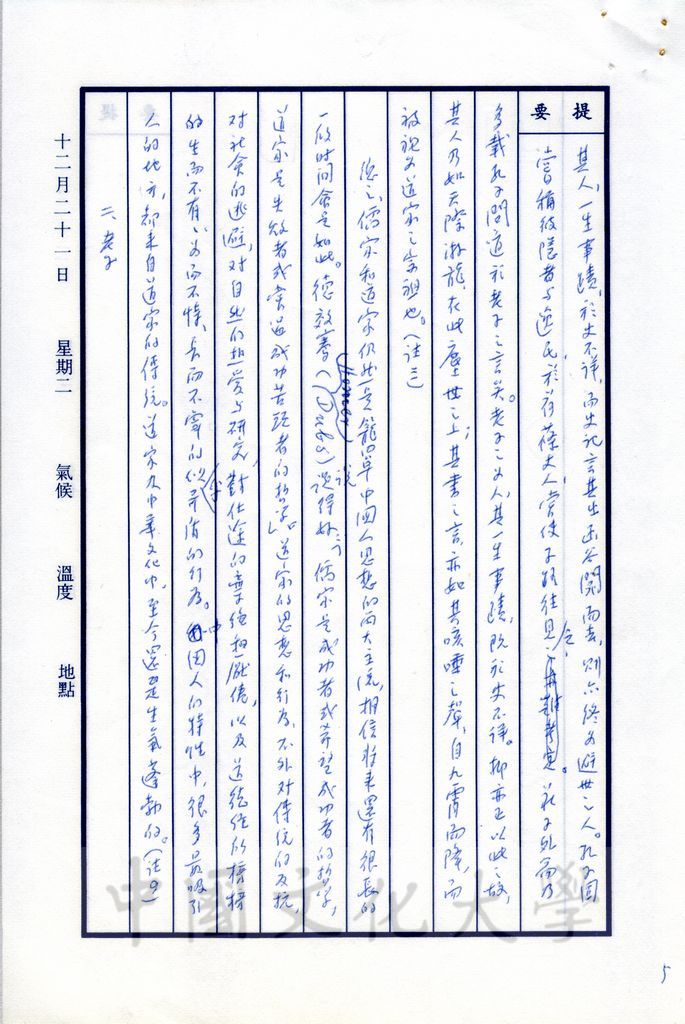 提要
其人,一生事蹟,於史不詳,而史記言其出函谷關而去,則亦終為避世之人。孔子固
嘗稱彼隱者與逸民,於荷蓧丈人,嘗使子路往見之。莊子外篇乃
多載孔子問道於老子之言矣。老子之為人,其一生事蹟,既於史不詳。抑亦正以此之故,
其人乃如天際游龍,在此塵世之上;其書之言,亦如其咳唾之聲,自九霄而降,而
被視為道家之宗祖也。(註三)
總之,儒家和道家仍然是籠罩中國人思想的兩大主流,相信將來還有很長的
一段時間會是如此。德效騫(Homer Dubs)說得好:「儒家是成功者或希望成功者的哲學,
道家是失敗者或嘗過成功苦頭者的哲學」。道家的思想和行為,不外對傳統的反抗,
對社會的逃避,對自然的熱愛與研究,對仕途的棄絕和厭倦,以及道德經所標榜
的生而不有,為而不恃,長而不宰的似乎消的行為。中國人的特性中,很多最吸引
人的地方,都來自道家的傳統。道家在中華文化中,至今還是生氣蓬勃的。(註四)
二、老子
十二月二十一日 星期二 氣候 溫度 地點
中國文化大學
5